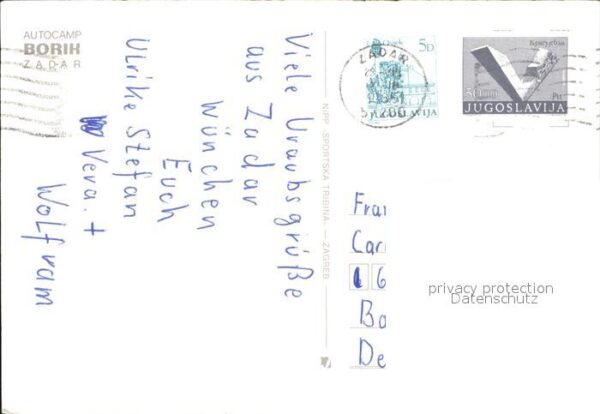 AUTOCAMP
BORIK
ZADAR
Viele Uraubsgrüße
aus Zadar
wünchen
Euch
Ulrike Stefan
Vera. +
Wolfram
NIPP „SPORTSKA TRIBINA“ — ZAGREB
Osijek
5D
JUGOSLAVIJA
ZADAR
57200
Kragujevac
50
JUGOSLAVIJA
Fra
Car
6
Bo
De
privacy protection
Datenschutz